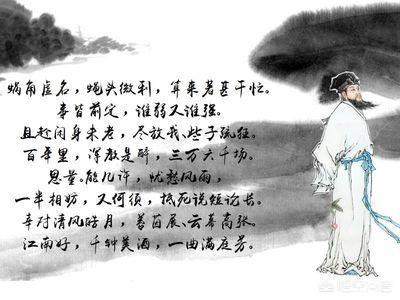 蜗角虚名，蝇头微利，算来著甚干忙。
事皆前定，谁弱又谁强。
且趁闲身未老，尽放我、些子疏狂。
百年里，浑教是醉，三万六千场。
思量。能几许，忧愁风雨，
一半相妨，又何须，抵死说短论长。
幸对清风皓月，苔茵展、云幕高张。
江南好，千钟美酒，一曲满庭芳。
悟空问答